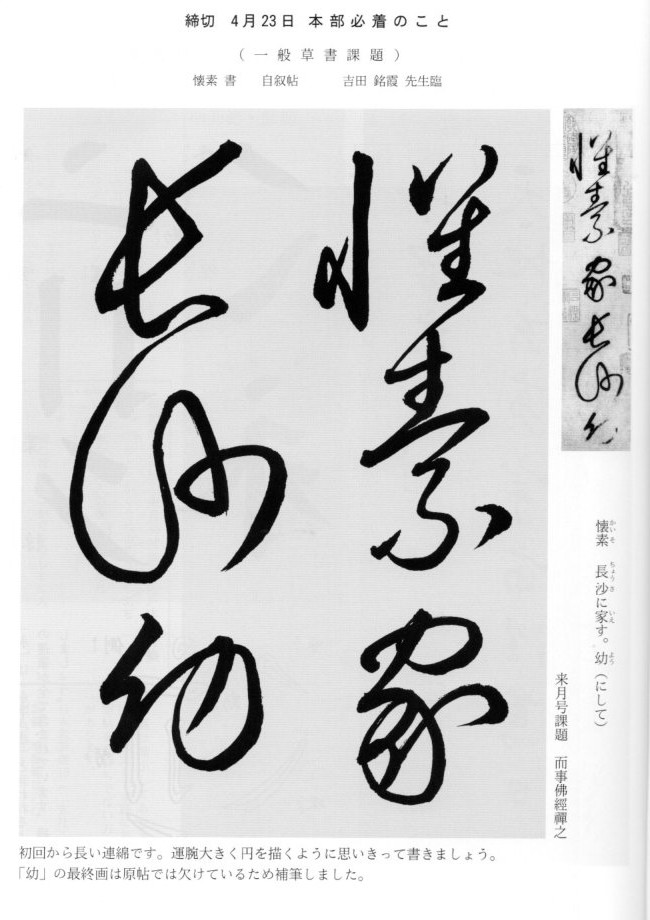 締切 4月23日 本部必着のこと
（一般草書課題）
懐素 書 自叙帖 吉田 銘霞 先生臨
懐素家
長沙幼
懐素家長沙幼
懐素 長沙に家す。幼（にして）
かいそ ちょうさ いえ よう
来月号課題 而事佛經禪之
初回から長い連綿です。運腕大きく円を描くように思いきって書きましょう。
「幼」の最終画は原帖では欠けているため補筆しました。